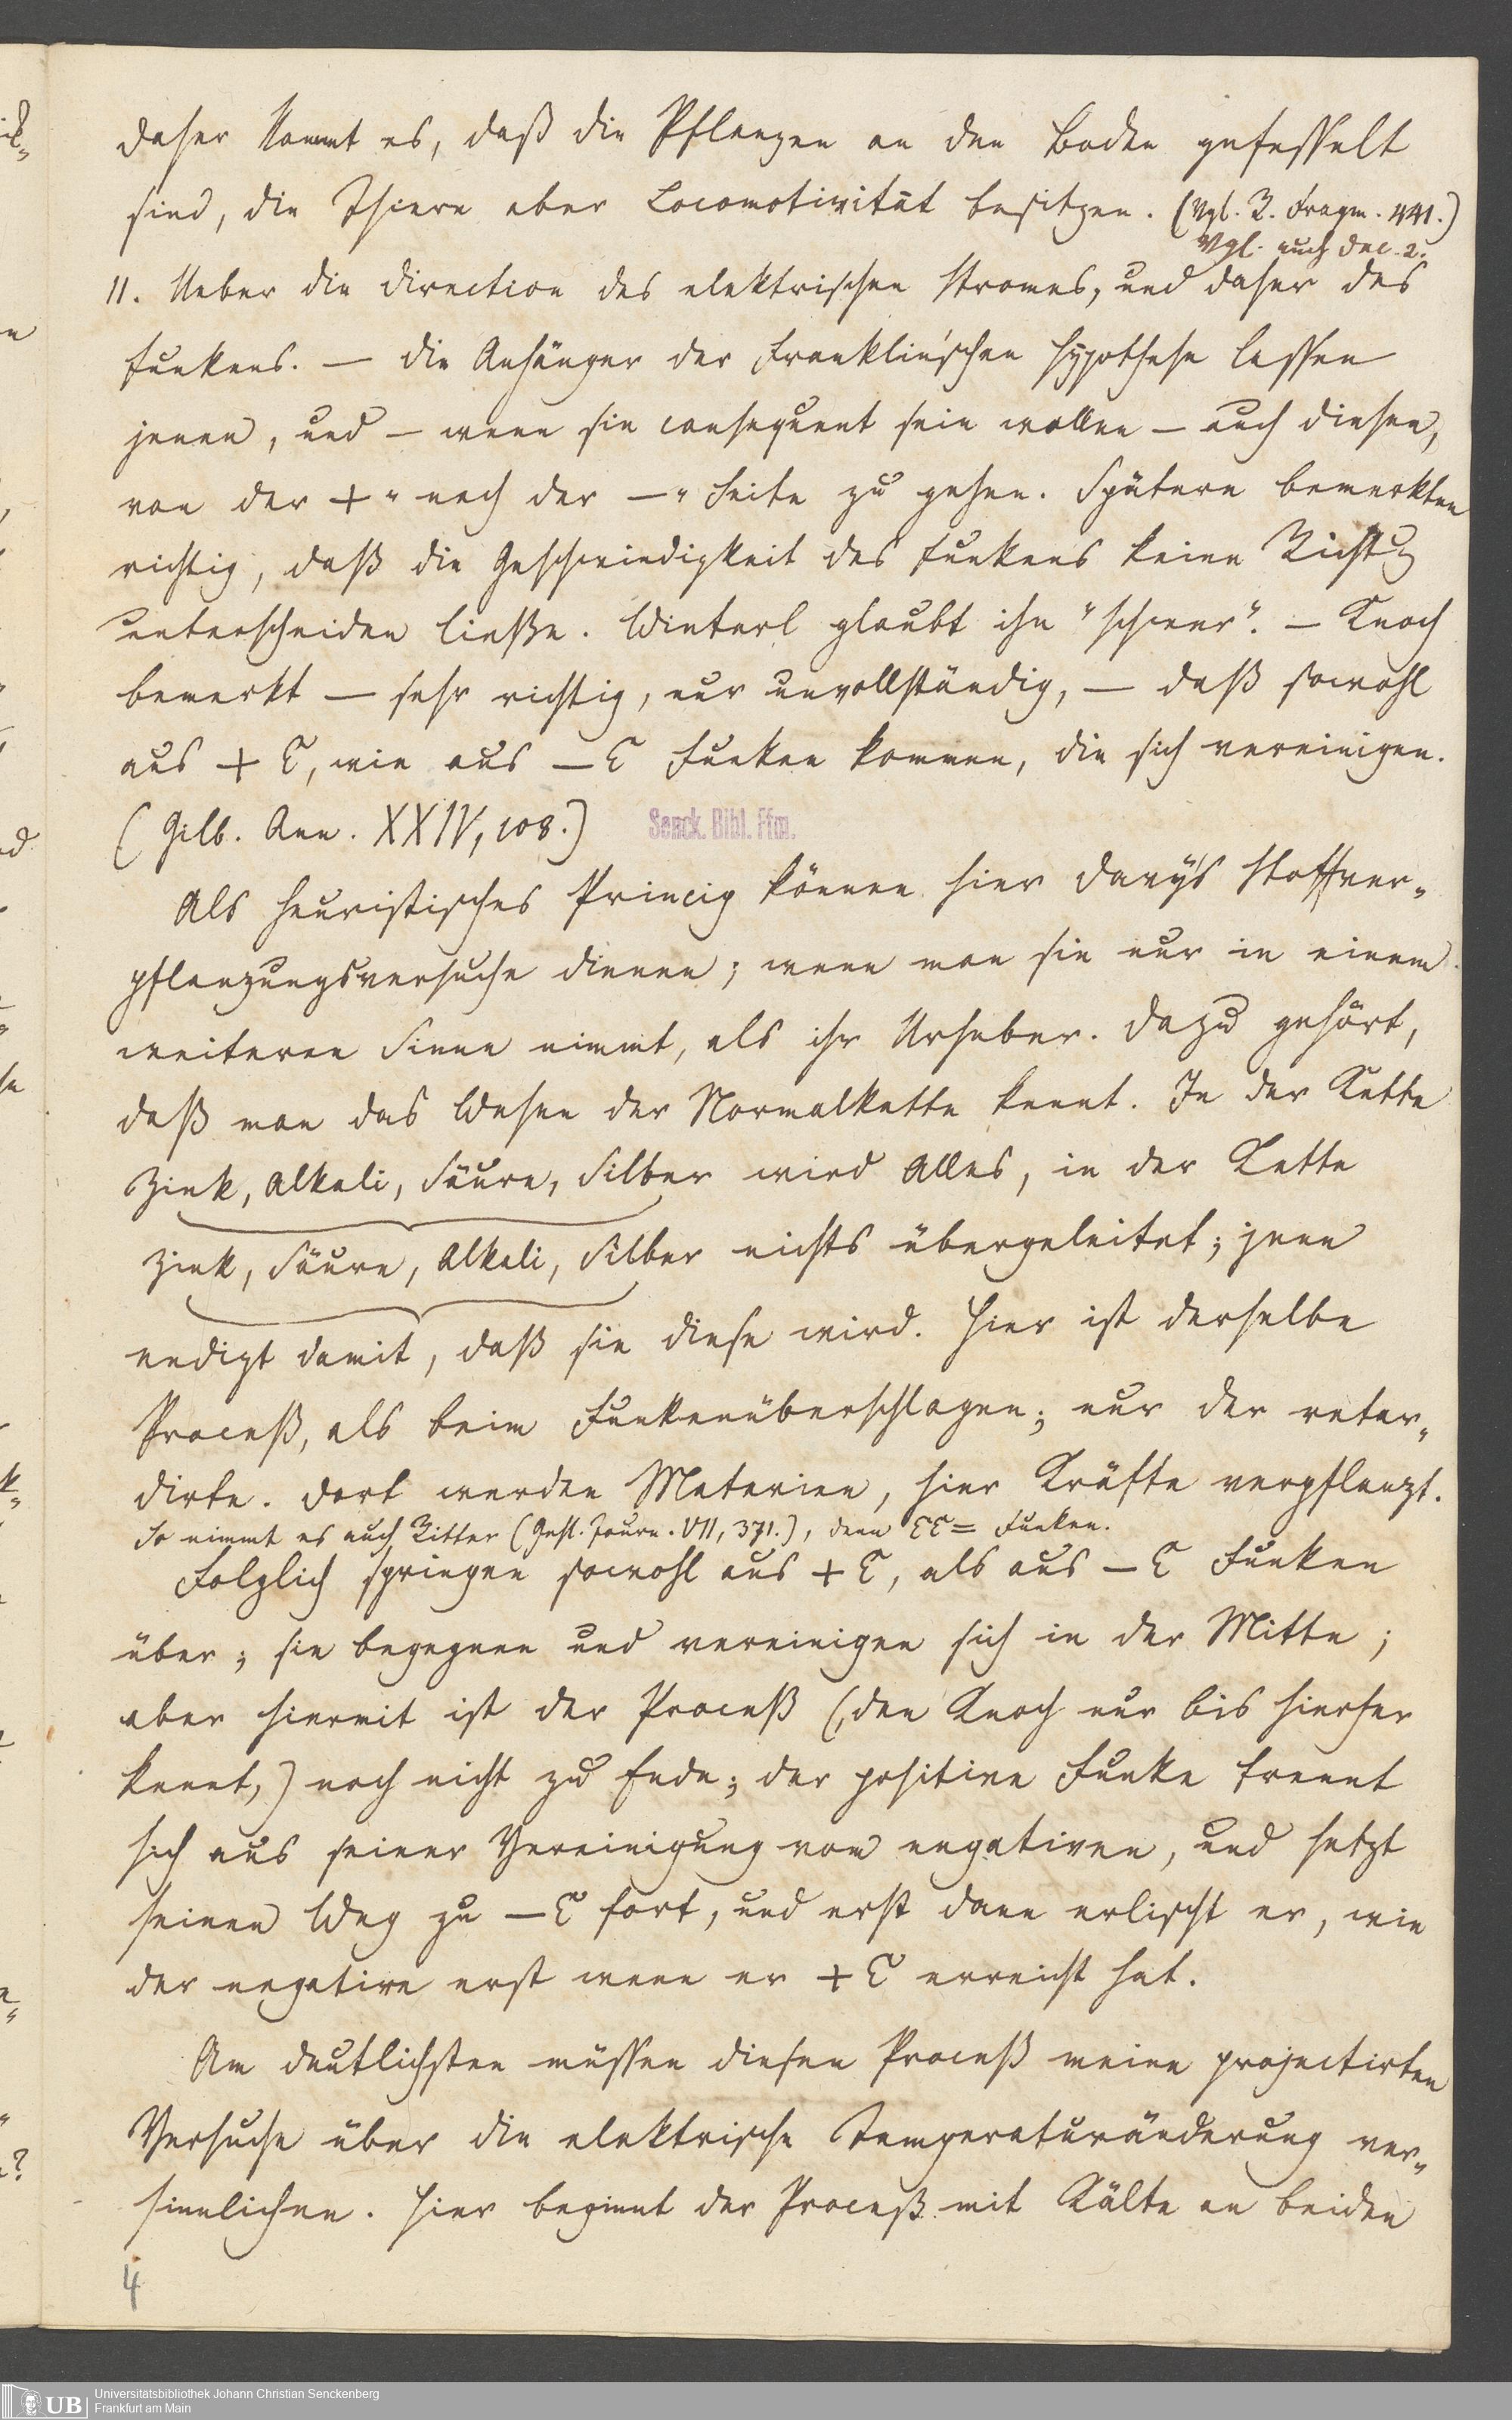 Daher kommt es, daß die Pflanzen an den Boden gefesselt
sind, die Thiere aber Locomotivität besitzen. (Vgl. R. Fragm. 441.)
Vgl. auch Dec. 2.
11. Ueber die Direction des elektrischen Stromes, und daher des
Funkens. — Die Anhänger der Franklin'schen Hypothese lassen
jenen, und — wenn sie consequent sein wollen — auch diesen,
von der +" nach der —" Seite zu gehen. Spätere bemerkten
richtig, daß die Geschwindigkeit des Funkens keine Richtung
unterscheiden ließe. Winterl glaubt ihn "schwer". — Knoch
bemerkt — sehr richtig, nur unvollständig, — daß sowohl
aus + E, wie aus — E Funken kommen, die sich vereinigen.
(Gilb. Ann. XXIV, 108.) Senck. Bibl. Ffm.
Als heuristisches Princip können hier Davy's Stoffver-
pflanzungsversuche dienen; wenn man sie nur in einem
weiteren Sinne nimmt, als ihr Urheber. Dazu gehört,
daß man das Wesen der Normalkette kennt. In der Kette
Zink, Alkali, Säure, Silber wird Alles, in der Kette
Zink, Säure, Alkali, Silber nichts übergeleitet; jene
endigt damit, daß sie diese wird. Hier ist derselbe
Proceß, als beim Funkenüberschlagen; nur der retar-
dirte. Dort werden Materien, hier Kräfte verpflanzt.
So nimmt es auch Ritter (Gehl. Journ. VII, 371.), denn EE = Funken.
Folglich springen sowohl aus + E, als aus — E Funken
über; sie begegnen und vereinigen sich in der Mitte;
aber hiermit ist der Proceß (, den Knoch nur bis hierher
kennt,) noch nicht zu Ende; der positive Funke trennt
sich aus seiner Vereinigung vom negativen, und setzt
seinen Weg zu — E fort, und erst dann erlischt er, wie
der negative erst wenn er + E erreicht hat.
Am deutlichsten müssen diesen Proceß meine projectirten
Versuche über die elektrische Temperaturänderung ver-
sinnlichen. Hier beginnt der Proceß mit Kälte an beiden
4
UB Universitätsbibliothek Johann Christian Senckenberg
Frankfurt am Main